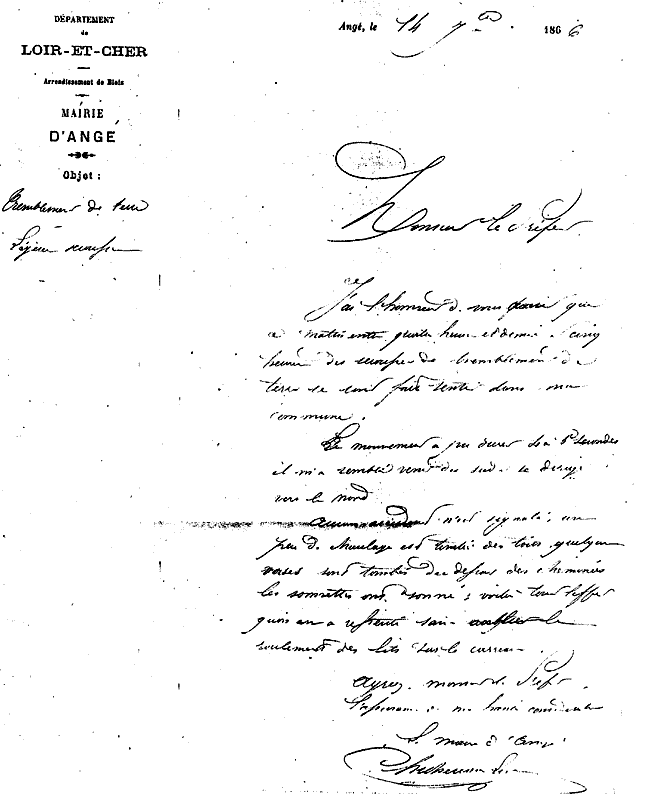 DÉPARTEMENT
de
LOIR-ET-CHER
Arrondissement de Blois
MAIRIE
D'ANGÉ
Objet :
Tremblement de terre
Légère secousse
Angé, le 14 7bre 1866
Monsieur le Préfet
J'ai l'honneur de vous que
ce matin entre quatre heures et demie & cinq
heures des secousses de tremblement de
terre se sont fait sentir dans ma
commune.
Le mouvement a pu durer de à 8 secondes
il m'a semblé venir du sud & se diriger
vers le nord
aucun accident n'est signalé, un
peu de est tombé des toits quelques
vases sont tombés du dessus des cheminées
les sonnettes ont sonné ; voilà tout l'effet
qu'on en a ressenti sans oublier le
roulement des lits sur le carreau.
Agréez, monsieur le Préfet
l'assurance de ma haute considération
Le maire d'Angé